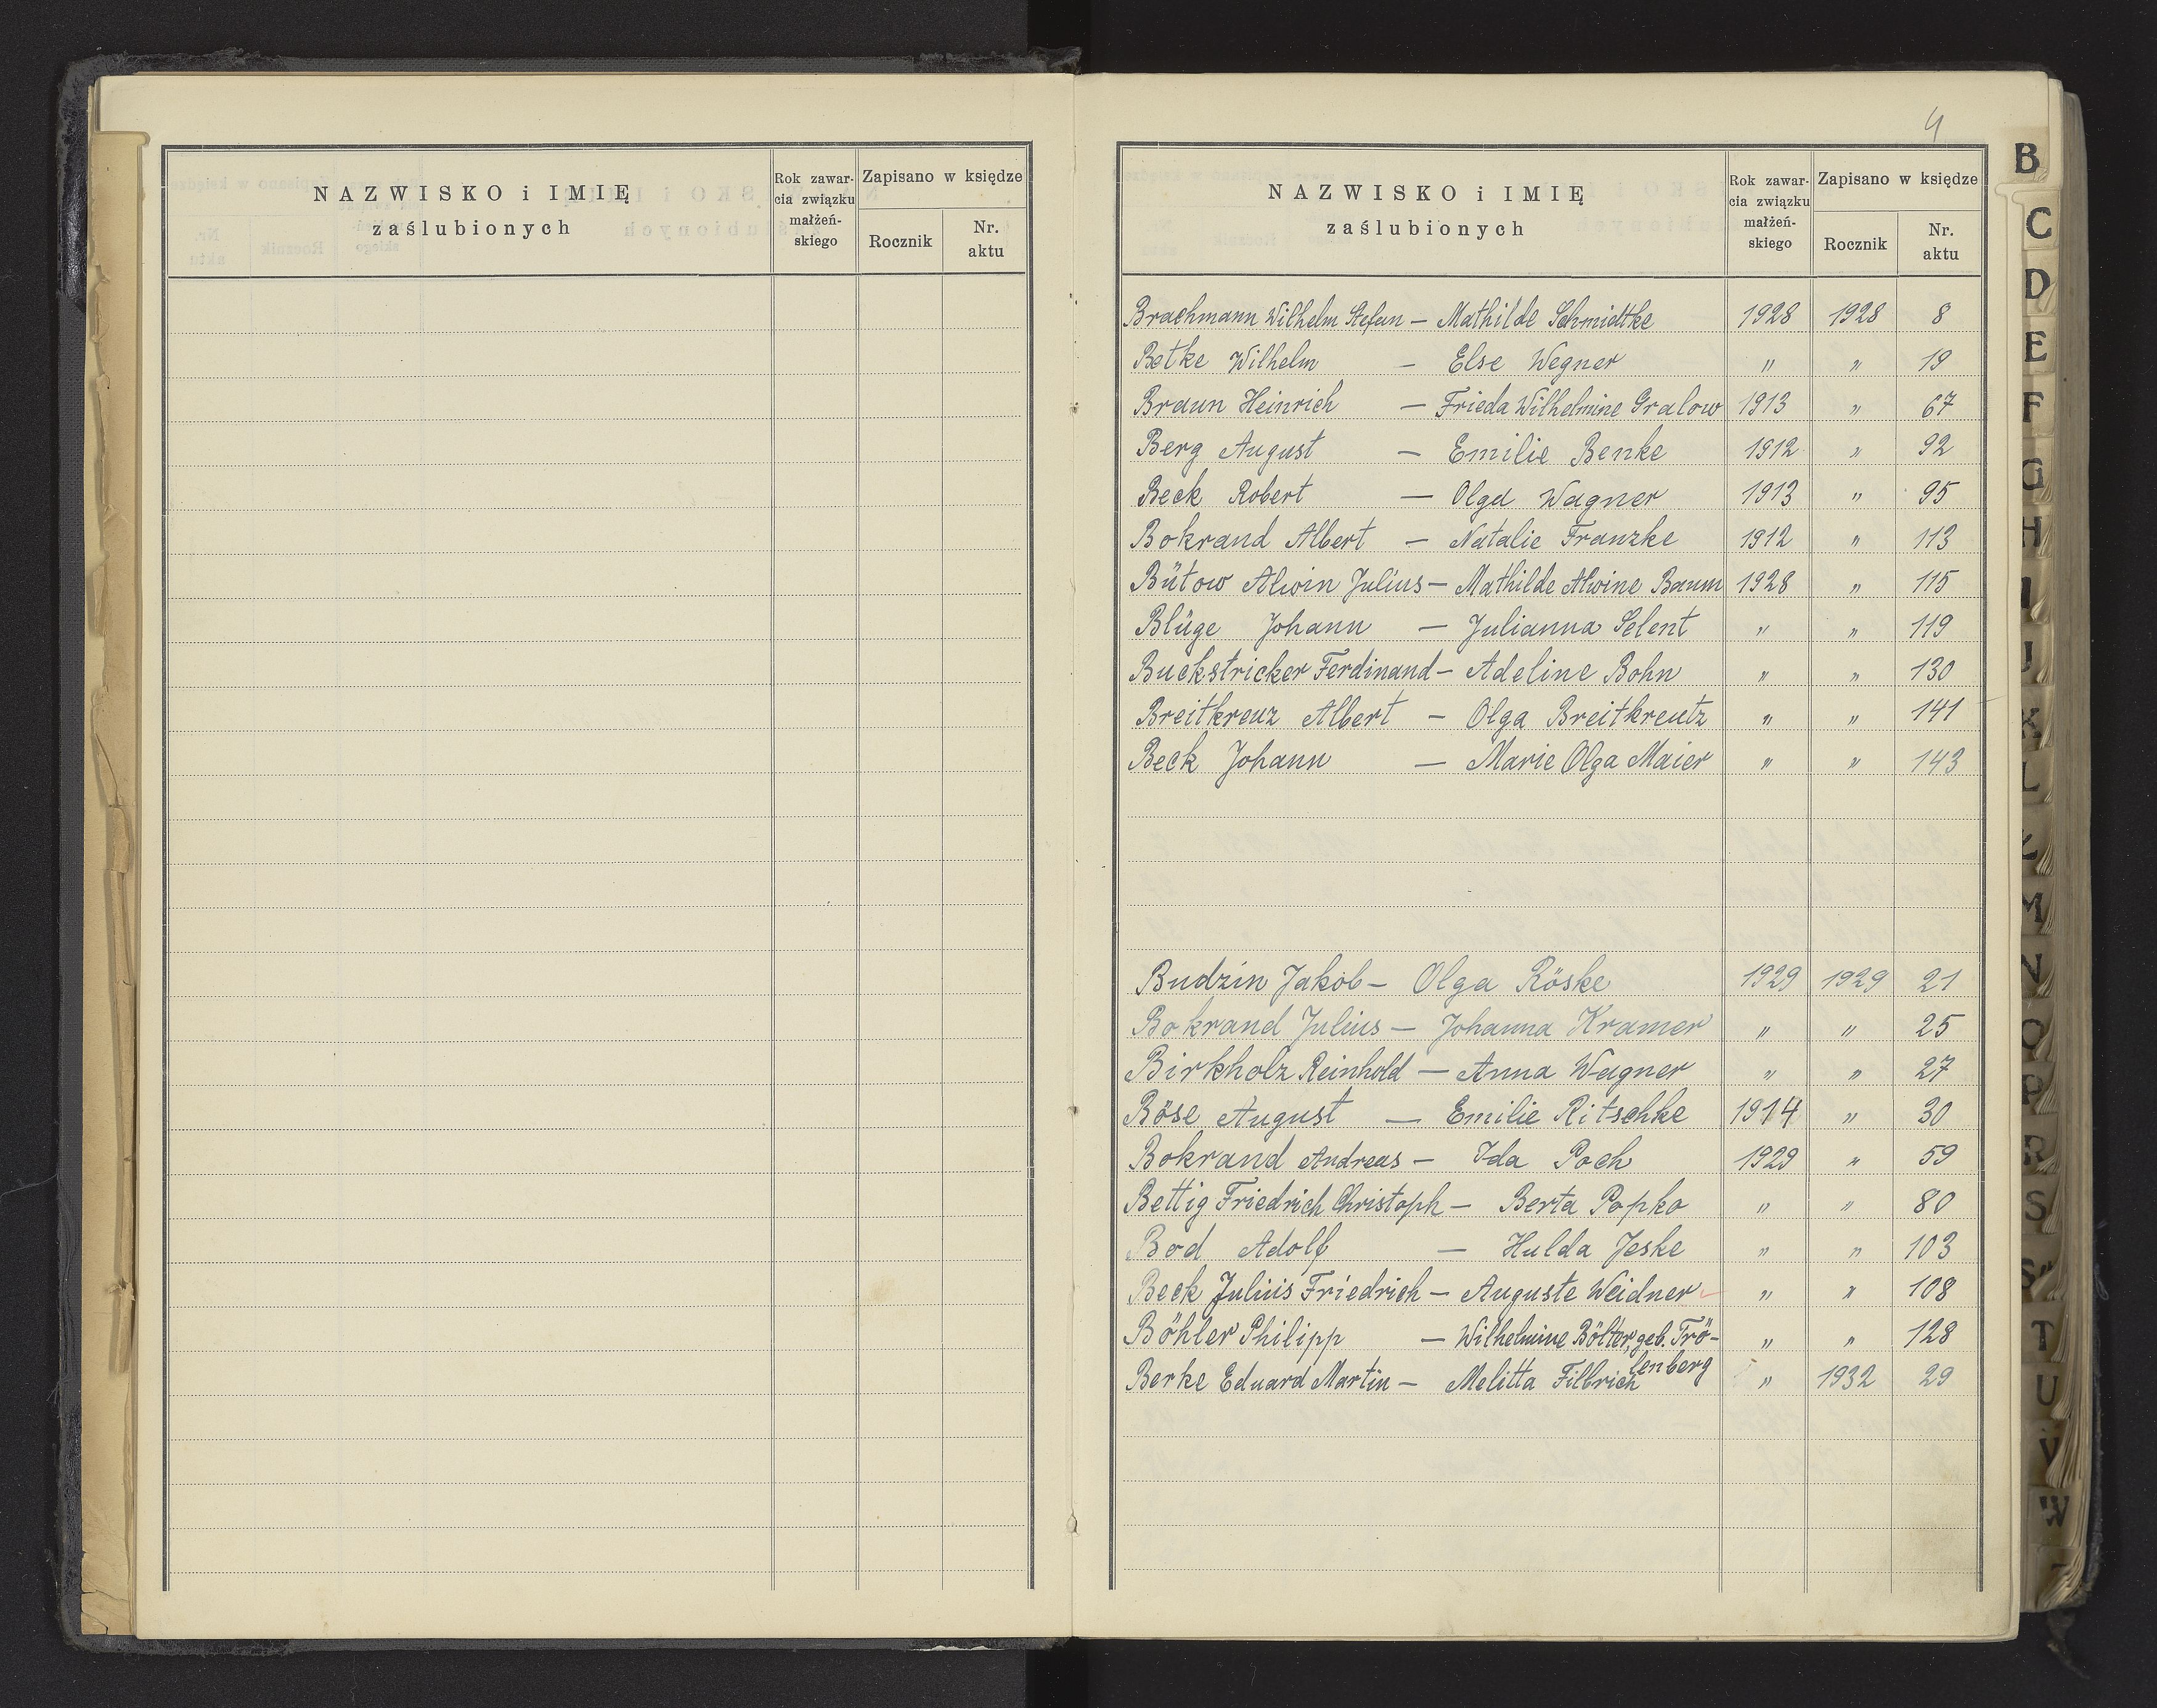 NAZWISKO i IMIĘ
zaślubionych
Rok zawar-
cia związku
małżeń-
skiego
Zapisano w księdze
Rocznik
Nr.
aktu
4
NAZWISKO i IMIĘ
zaślubionych
Rok zawar-
cia związku
małżeń-
skiego
Zapisano w księdze
Rocznik
Nr.
aktu
Brachmann Wilhelm Stefan — Mathilde Schmidtke 1928 1928 8
Betke Wilhelm — Else Wegner " " 19
Braun Heinrich — Frieda Wilhelmine Gralow 1913 " 67
Berg August — Emilie Benke 1912 " 92
Beck Robert — Olga Wagner 1913 " 95
Bokrand Albert — Natalie Franzke 1912 " 113
Bütow Alwin Julius — Mathilde Alwine Baum 1928 " 115
Blüge Johann — Julianna Selent " " 119
Buckstricker Ferdinand — Adeline Bohn " " 130
Breitkreuz Albert — Olga Breitkreutz " " 141
Beck Johann — Marie Olga Maier " " 143
Budzin Jakob — Olga Röske 1929 1929 21
Bokrand Julius — Johanna Kramer " " 25
Birkholz Reinhold — Anna Wagner " " 27
Böse August — Emilie Ritschke 1914 " 30
Bokrand Andreas — Ida Poch 1929 " 59
Bettig Friedrich Christoph — Berta Popko " " 80
Bod Adolf — Hulda Jeske " " 103
Beck Julius Friedrich — Auguste Weidner " " 108
Böhler Philipp — Wilhelmine Bölter, geb. Trö- " " 128
lenberg
Berke Eduard Martin — Melitta Filbrich " 1932 29
B
C
D
E
F
G
H
I
J
K
L
Ł
M
N
O
P
R
S
Ś
T
U
V
W